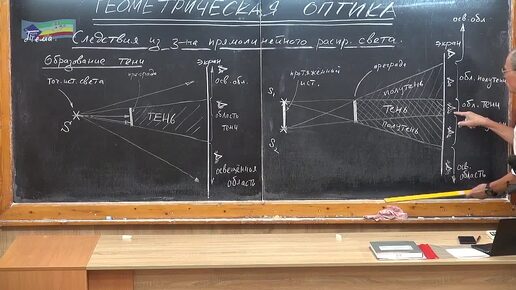 ГЕОМЕТРИЧЕСКАЯ ОПТИКА
Тема: Следствия из з-на прямолинейного распр. света.
Образование тени
точ. ист. света
преграда
экран
осв. обл.
S
ТЕНЬ
область
тени
освещённая
область
протяженный
ист.
преграда
экран
осв. обл.
S₁
S₂
полутень
тень
полутень
обл. полутени
обл. тени
осв.
область